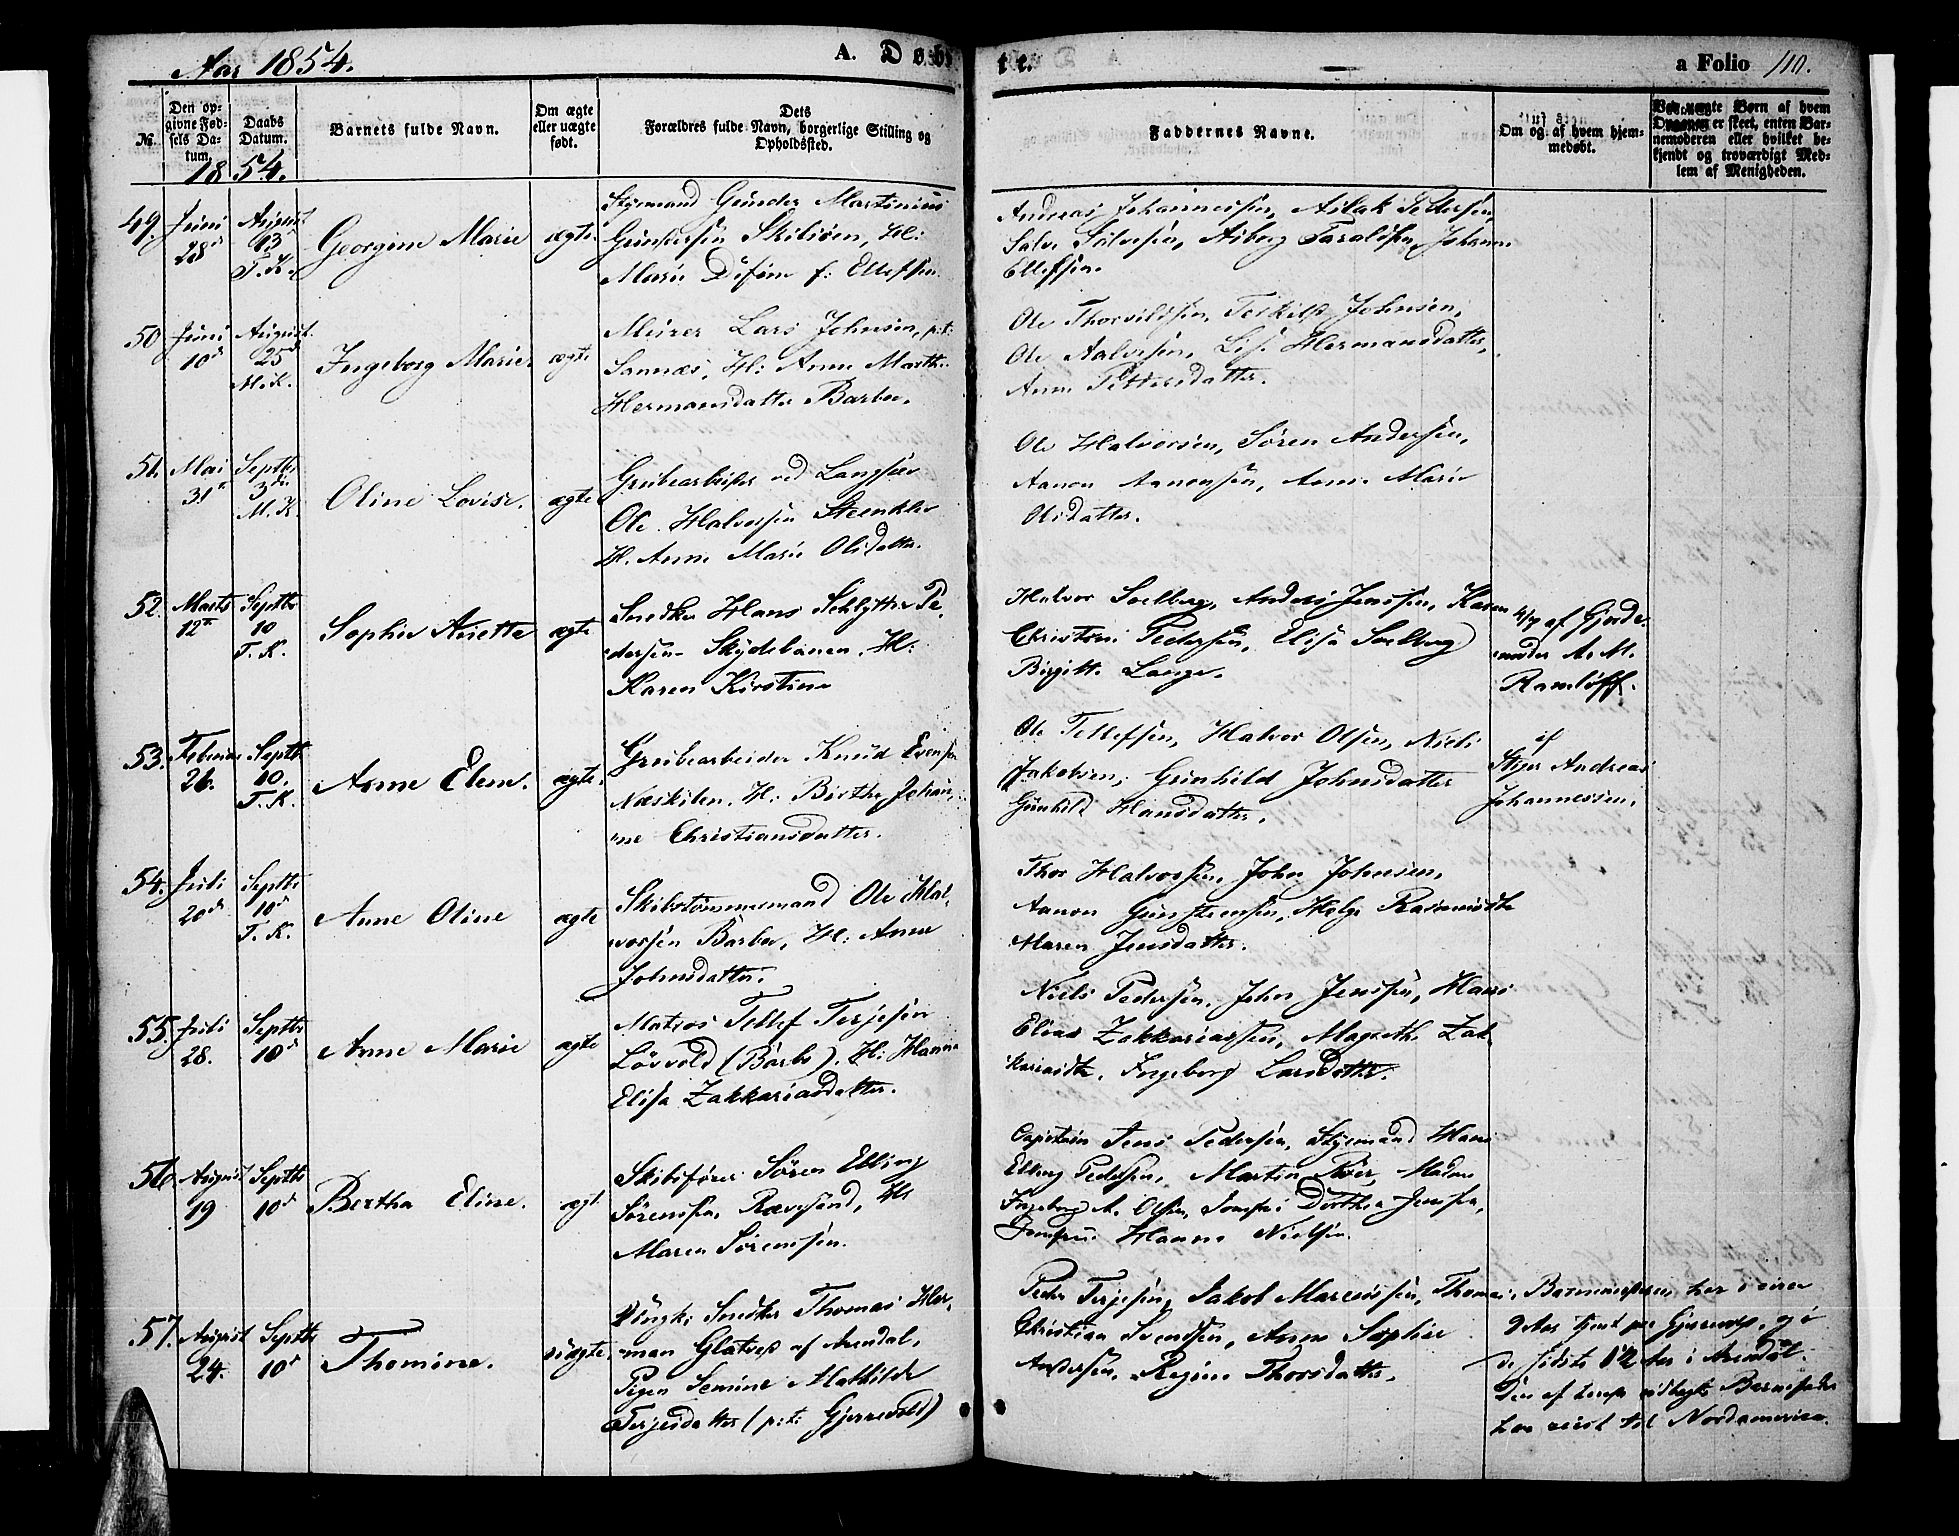 Aar 1854.
A. Døb
te.
a Folio 110.
No.
Den op-
givne Fød-
sels Da-
tum.
Daabs
Datum.
Barnets fulde Navn.
Om ægte
eller uægte
født.
Dets
Forældres fulde Navn, borgerlige Stilling og
Opholdssted.
Faddernes Navne.
Om og af hvem hjem-
medøbt.
er skeet, enten Bar-
nemoderen eller hvilket be-
kjendt og troværdigt Med-
lem af Menigheden.
1854.
49.
Juni
28d
August
13
T. K.
Georgine Marie
ægte
Styrmand Gunder Martinius
Gundersen Skilsøen, H:
Marie f: Ellefsen
Andreas Johannessen, Aslak Pedersen,
Salve Salvesen, Taraldsen, Johanne
Ellefsen.
50
Juni
10d
August
25d
M.K.
Ingeborg Marie.
ægte
Murer Lars Johnsen, p:t:
Sannæs, H: Anne Marthe
Hermansdatter Barbo.
Ole Thorvildsen, Terkild Johnsen,
Ole Aalvesen, Lise Hermansdatter,
Anne Pettersdatter.
51.
Mai
31te
Septbr
3die
M. K.
Oline Lovise.
ægte
Grubearbeider ved Langsæv
Ole Halvorsen Steenklev
H. Anne Marie Olsdatter.
Ole Halvorsen, Søren Andersen,
Aanon Aanonsen, Anne Marie
Olsdatter.
52.
Marts
12te
Septbr
10
T. K.
Sophie Arietta
ægte
Snedker Hans Schlytter Pe-
dersen Skydebanen. H:
Karen Kirstine
Halvor Soelberg, Anders Jenssen, Karen
Christine Pedersen, Elise Soelberg
Birgitte Lange.
4/7 af Gjorde-
moder A. M.
Ramløff.
53.
Februar
26.
Septbr
10.
T. K.
Anne Elene.
ægte.
Grubearbeider Knud Evensen
Næskilen. H: Birthe Johan-
ne Christiansdatter.
Ole Tellefsen, Halvor Olsen, Niels
Jakobsen, Gunhild Johnsdatter
Gunhild Hansdatter.
af
Stiger Andreas
Johannessen.
54.
Juli
20d
Septbr
10d
T. K.
Anne Oline
ægte
Skibstømmermand Ole Hal-
vorsen Barbo, H: Anne
Johnsdatter.
Thor Halvorsen, John Johnsen,
Aanon Gunsteensen, Helge Rasmusdtr
Maren Jensdatter.
55.
Juli
28.
Septbr
10d
Anne Marie
ægte
Matros Tellef Terjesen
Løvold (Barbo). H: Hanne
Elise Zakkariasdatter.
Niels Pedersen, John Jenssen, Hans
Elias Zakkariassen, Magrethe Zak-
kariasdtr, Ingeborg Larsdatter.
56
August
19
Septbr
10d
Bertha Eline.
ægte
Skibsfører Søren Elling
Sørensen, Rævesand, H:
Maren Sørensen.
Capitain Jens Pedersen, Styrmand Hans
Elberg Pedersen, Martin Madam
Ingeborg A. Olsen, Jomfru Dorthea Jensen,
Jomfru Hanne Nielsen.
57.
August
24.
Septbr
10d
Thomine.
uægte.
Ungk: Snedker Thomas Her-
man Glatved af Arendal,
Pigen Semine Mathilde
Terjesdatter (p:t: Gjerrevold)
Peder Terjesen, Jakob Marcussen, Thomas
Christian Svendsen, Anne Sophie
Andersen, Regine Thorsdatter.
Barnemoderen har i eneir
Aar tjent paa Gjerrevold, og i
de sidste 12 Aar i Arendal.
Den af hende udlagte Barnefader
har reist til Nordamerica.